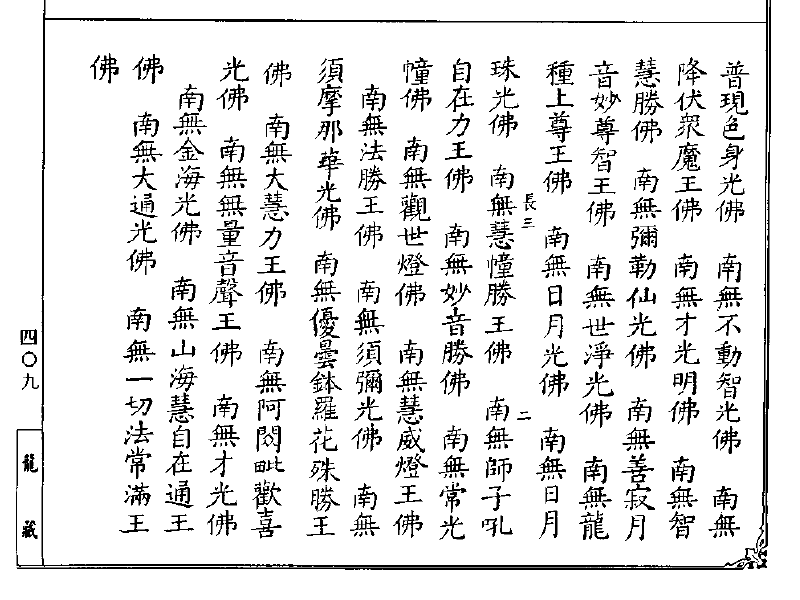 普現色身光佛　南無不動智光佛　南無
降伏衆魔王佛　南無才光明佛　南無智
慧勝佛　南無彌勒仙光佛　南無善寂月
音妙尊智王佛　南無世淨光佛　南無龍
種上尊王佛　南無日月光佛　南無日月
珠光佛　南無慧幢勝王佛　南無師子吼
長三
二
自在力王佛　南無妙音勝佛　南無常光
幢佛　南無觀世燈佛　南無慧威燈王佛
南無法勝王佛　南無須彌光佛　南無
須摩那華光佛　南無優曇鉢羅花殊勝王
佛　南無大慧力王佛　南無阿閦毗歡喜
光佛　南無無量音聲王佛　南無才光佛
南無金海光佛　南無山海慧自在通王
佛　南無大通光佛　南無一切法常滿王
佛
四〇九
龍藏